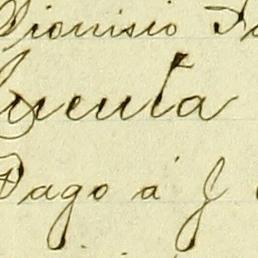 Dionisio
Cuenta
Pago á J